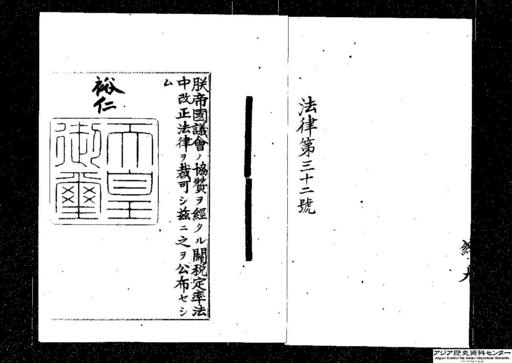 法律第三十二號
朕帝國議會ノ協賛ヲ經タル關税定率法
中改正法律ヲ裁可シ茲ニ之ヲ公布セシ
ム
裕仁
天皇
御璽
アジア歴史資料センター
Japan Center for Asian Historical Records